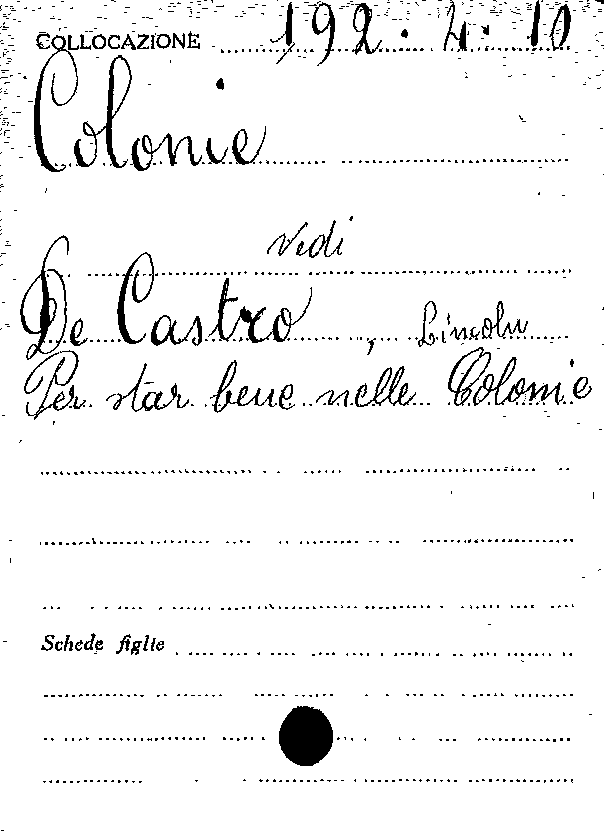 COLLOCAZIONE 192.4.10
Colonie
Vedi
De Castro, Lincoln
Per star bene nelle Colonie
Schede figlie